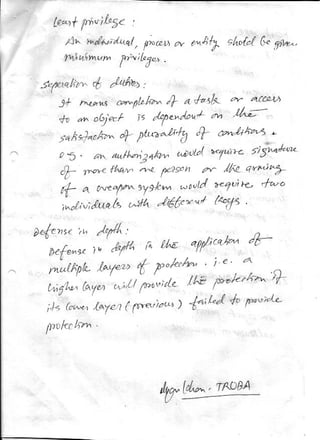 Least privilege :
An individual, process or entity should be given
minimum privileges.
Separation of duties :
It means completion of a task or access
to an object is dependent on the
satisfaction of plurality of conditions.
e.g. an authorization would require signature
of more than one person or the arming
of a weapon system would require two
individuals with different keys.
Defense in depth :
Defense in depth is the application of
multiple layers of protection. i.e. a
higher layer will provide the protection if
its lower layer (previous) failed to provide
protection.
TROBA